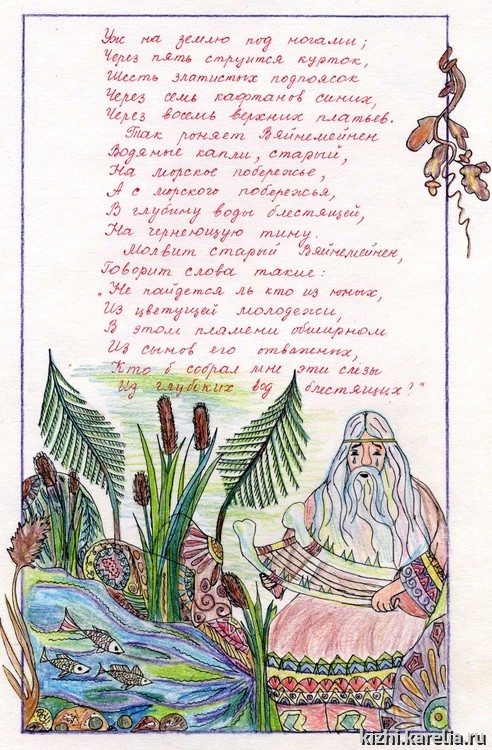 Уж на землю под ногами;
Через пять струится курток,
Шесть златистых подпоясок
Через семь кафтанов синих,
Через восемь верхних платьев.
Так роняет Вяйнемейнен
Водяные капли, старый,
На морское побережье,
А с морского побережья,
В глубину воды блестящей,
На чернеющую тину.
Молвит старый Вяйнемейнен,
Говорит слова такие:
"Не найдется ль кто из юных,
Из цветущей молодежи,
В этом племени обширном
Из сынов его отважных,
Кто б собрал мне эти слёзы
Из глубоких вод блестящих?"
kizhi.karelia.ru